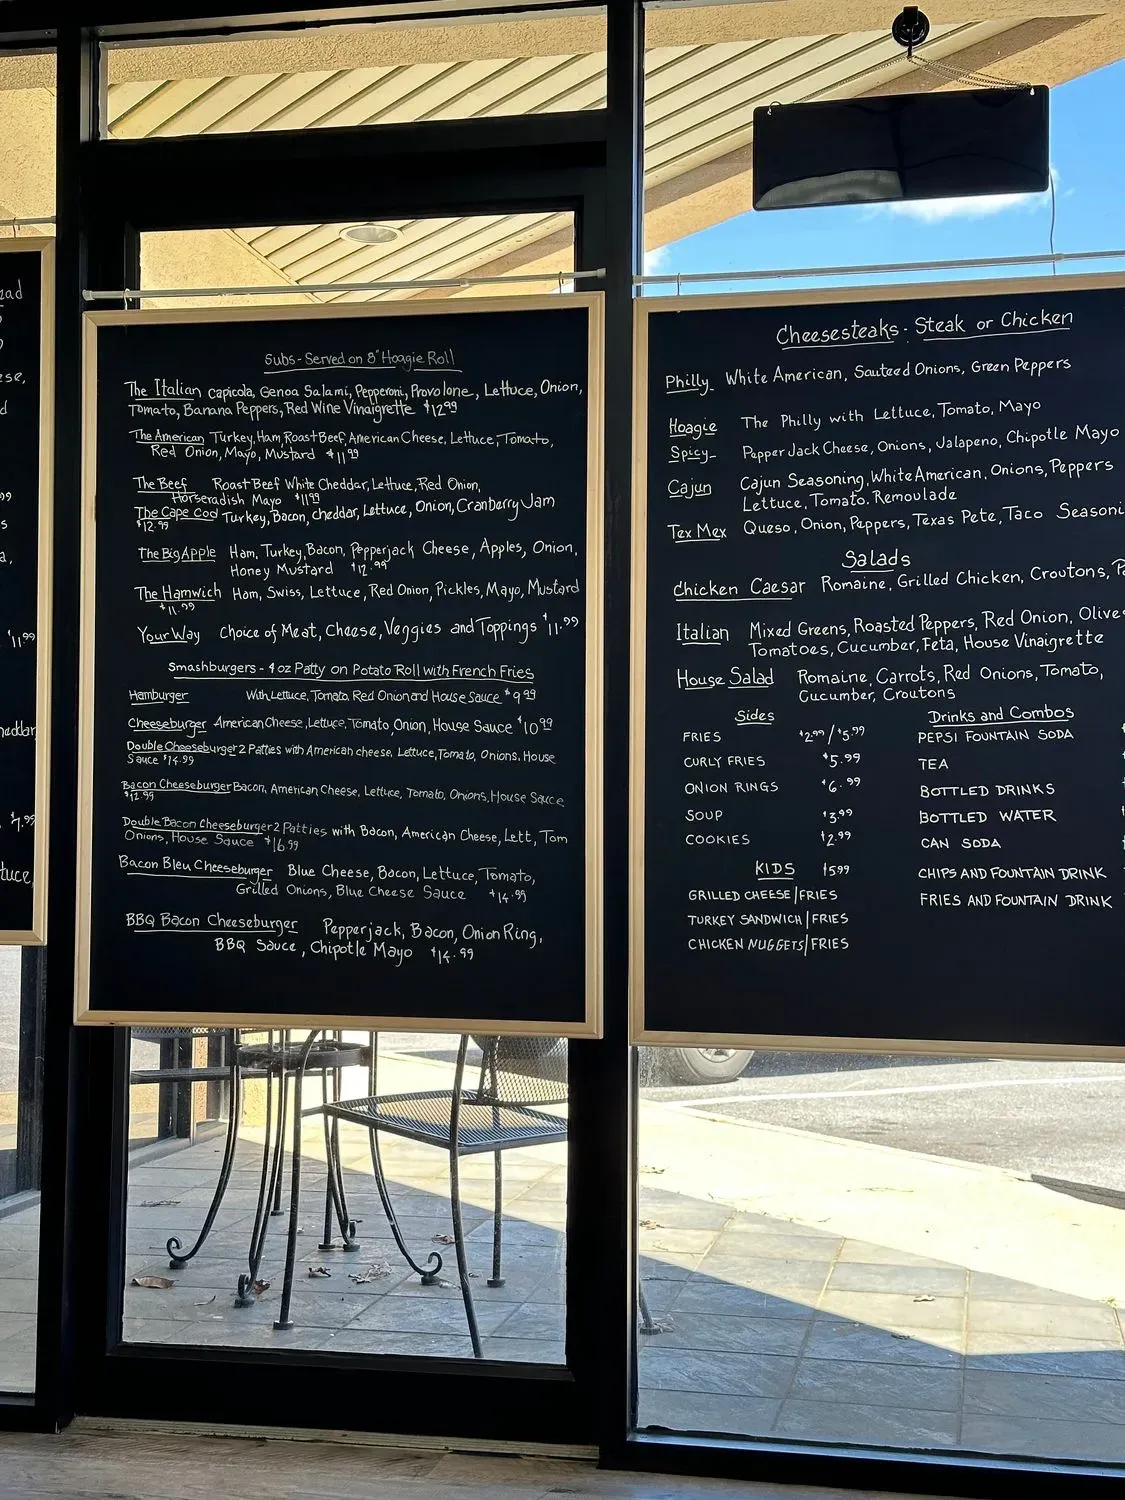 ead
ese,
d
99
s
a,
$11.99
heddar,
$7.99
tuce,
Subs - Served on 8" Hoagie Roll
The Italian capicola, Genoa Salami, Pepperoni, Provolone, Lettuce, Onion,
Tomato, Banana Peppers, Red Wine Vinaigrette $12.99
The American Turkey, Ham, Roast Beef, American Cheese, Lettuce, Tomato,
Red Onion, Mayo, Mustard $11.99
The Beef Roast Beef White Cheddar, Lettuce, Red Onion,
Horseradish Mayo $11.99
The Cape Cod Turkey, Bacon, cheddar, Lettuce, Onion, Cranberry Jam
$12.99
The Big Apple Ham, Turkey, Bacon, Pepperjack Cheese, Apples, Onion,
Honey Mustard $12.99
The Hamwich Ham, Swiss, Lettuce, Red Onion, Pickles, Mayo, Mustard
$11.99
Your Way Choice of Meat, Cheese, Veggies and Toppings $11.99
Smashburgers - 4 oz Patty on Potato Roll with French Fries
Hamburger With Lettuce, Tomato, Red Onion and House Sauce $9.99
Cheeseburger American Cheese, Lettuce, Tomato, Onion, House Sauce $10.99
Double Cheeseburger 2 Patties with American cheese, Lettuce, Tomato, Onions, House
Sauce $14.99
Bacon Cheeseburger Bacon, American Cheese, Lettuce, Tomato, Onions, House Sauce
$12.99
Double Bacon Cheeseburger 2 Patties with Bacon, American Cheese, Lett, Tom
Onions, House Sauce $16.99
Bacon Bleu Cheeseburger Blue Cheese, Bacon, Lettuce, Tomato,
Grilled Onions, Blue Cheese Sauce $14.99
BBQ Bacon Cheeseburger Pepperjack, Bacon, Onion Ring,
BBQ Sauce, Chipotle Mayo $14.99
Cheesesteaks - Steak or Chicken
Philly White American, Sauteed Onions, Green Peppers
Hoagie The Philly with Lettuce, Tomato, Mayo
Spicy Pepper Jack Cheese, Onions, Jalapeno, Chipotle Mayo
Cajun Cajun Seasoning, White American, Onions, Peppers
Lettuce, Tomato, Remoulade
Tex Mex Queso, Onion, Peppers, Texas Pete, Taco Seasoni
Salads
Chicken Caesar Romaine, Grilled Chicken, Croutons, Pa
Italian Mixed Greens, Roasted Peppers, Red Onion, Olive
Tomatoes, Cucumber, Feta, House Vinaigrette
House Salad Romaine, Carrots, Red Onions, Tomato,
Cucumber, Croutons
Sides
FRIES $2.99/$5.99
CURLY FRIES $5.99
ONION RINGS $6.99
SOUP $3.99
COOKIES $2.99
KIDS $5.99
GRILLED CHEESE/FRIES
TURKEY SANDWICH/FRIES
CHICKEN NUGGETS/FRIES
Drinks and Combos
PEPSI FOUNTAIN SODA
TEA
BOTTLED DRINKS
BOTTLED WATER
CAN SODA
CHIPS AND FOUNTAIN DRINK
FRIES AND FOUNTAIN DRINK